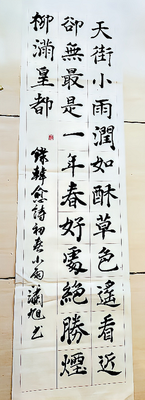 天街小雨潤如酥草色遙看近
卻無最是一年春好處絕勝煙
柳滿皇都
錄韓愈詩初春小雨